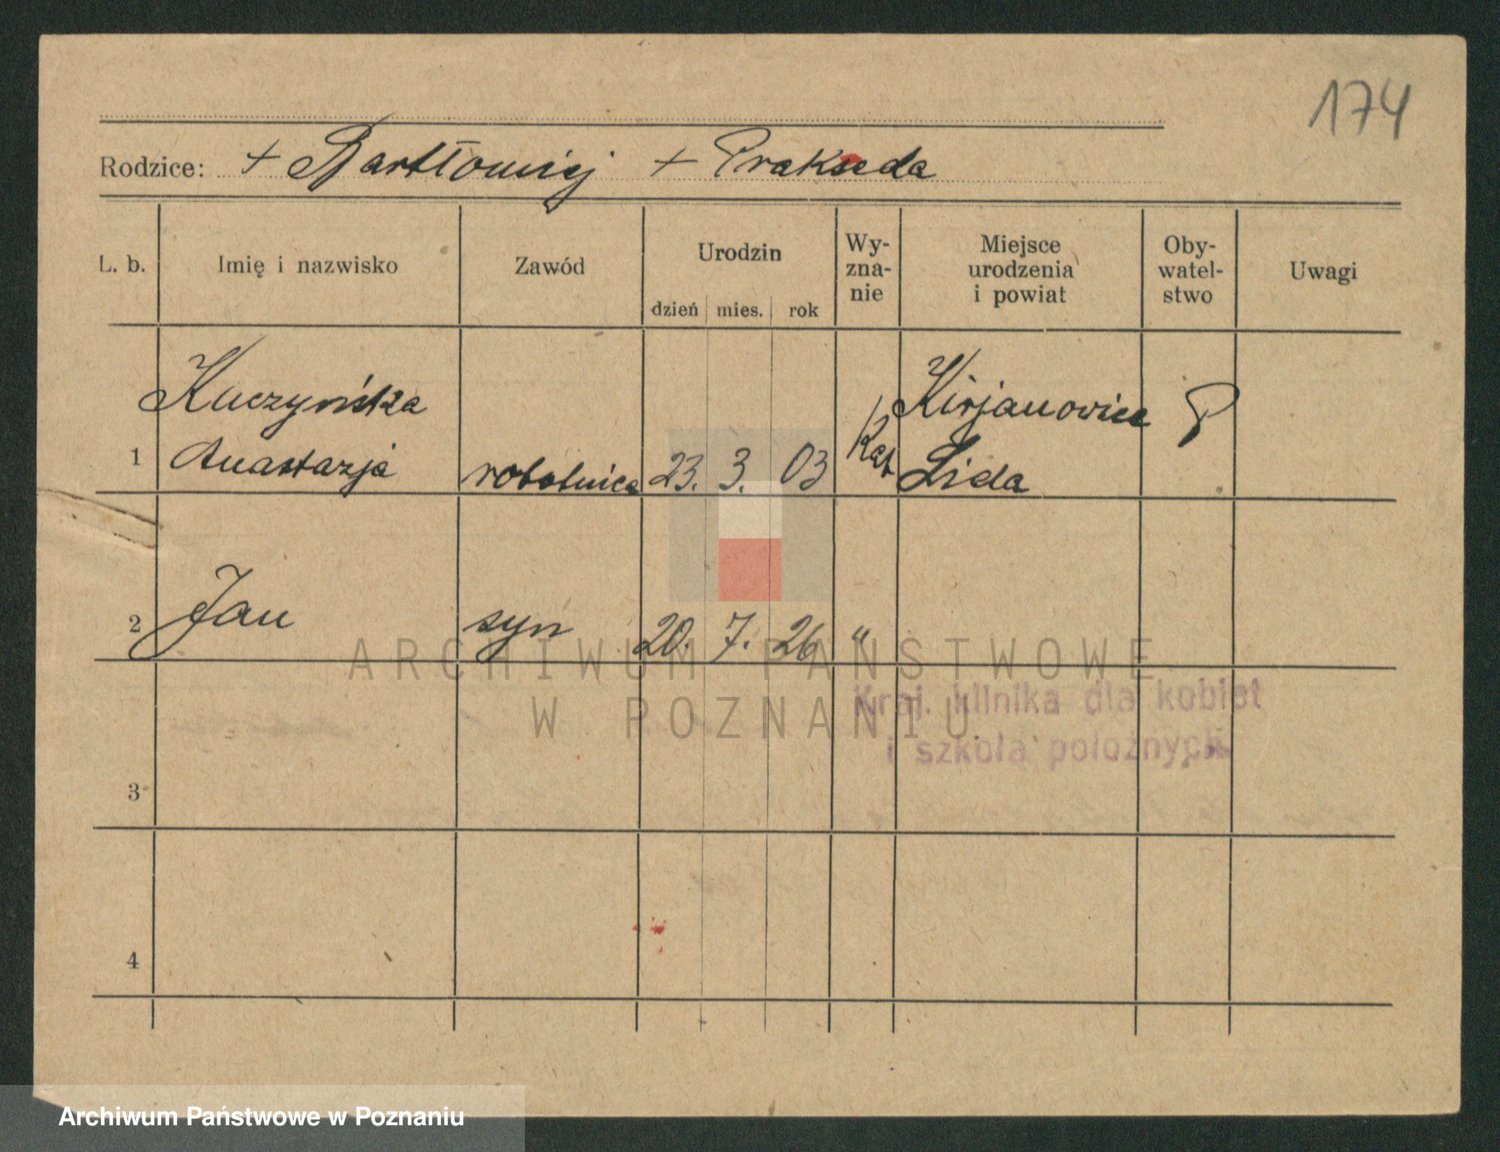 174
Rodzice: + Bartłomiej + Prakseda
L. b. Imię i nazwisko Zawód Urodzin dzień mies. rok Wy-zna-nie Miejsce urodzenia i powiat Oby-watel-stwo Uwagi
Kuczyńska Kirjanowice P
1 Anastazja robotnica 23. 3. 03 Kat Lida
2 Jan syn 20. 7. 26 "
ARCHIWUM PAŃSTWOWE
W POZNANIU
Kraj. klinika dla kobiet
i szkoła położnych
3
4
Archiwum Państwowe w Poznaniu